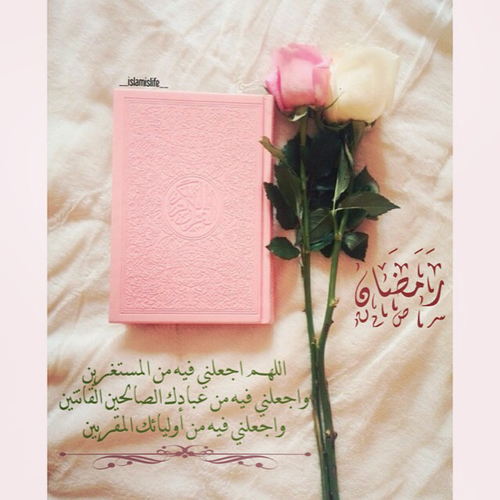 __islamislife__
رَمَضَان
اللهم اجعلني فيه من المستغرين
واجعلني فيه من عبادك الصالحين القانتين
واجعلني فيه من أوليائك المقربين